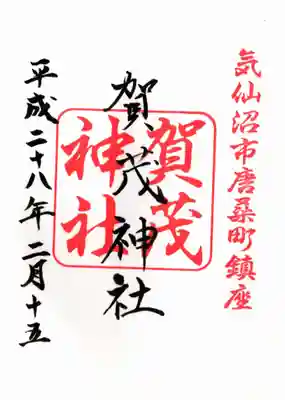 気仙沼市唐桑町鎮座
賀茂神社
賀茂神社
平成二十八年二月十五